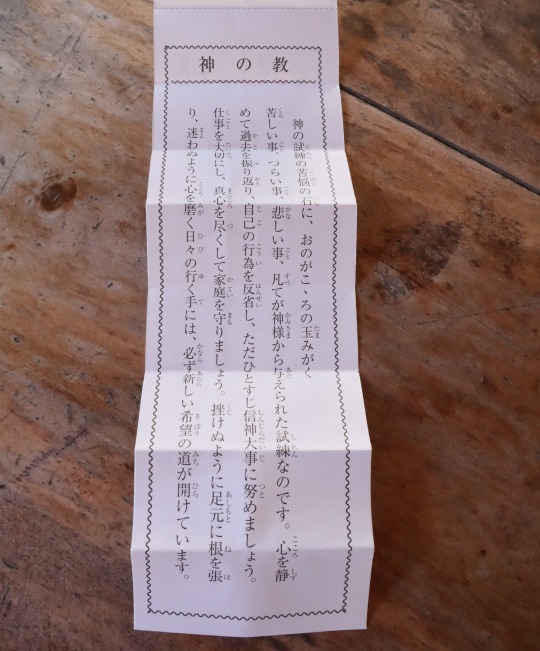 神の教
神の試練の苦悩の石に、おのがこゝろの玉みがく
苦しい事、つらい事、悲しい事、凡てが神様から与えられた試練なのです。心を静
めて過去を振り返り、自己の行為を反省し、ただひとすじ信神大事に努めましょう。
仕事を大切にし、真心を尽くして家庭を守りましょう。挫けぬように足元に根を張
り、迷わぬように心を磨く日々の行く手には、必ず新しい希望の道が開けています。